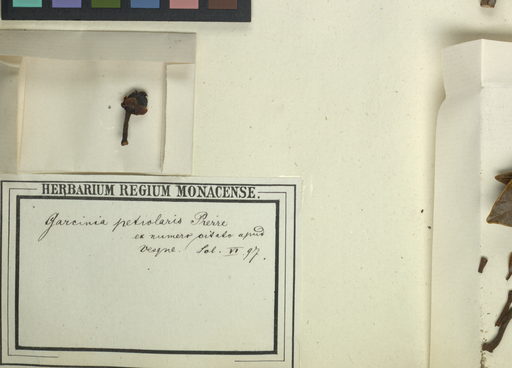 HERBARIUM REGIUM MONACENSE.
Garcinia petiolaris Pierre
ex numero citato apud
Vesque. Sol. VI. 97.